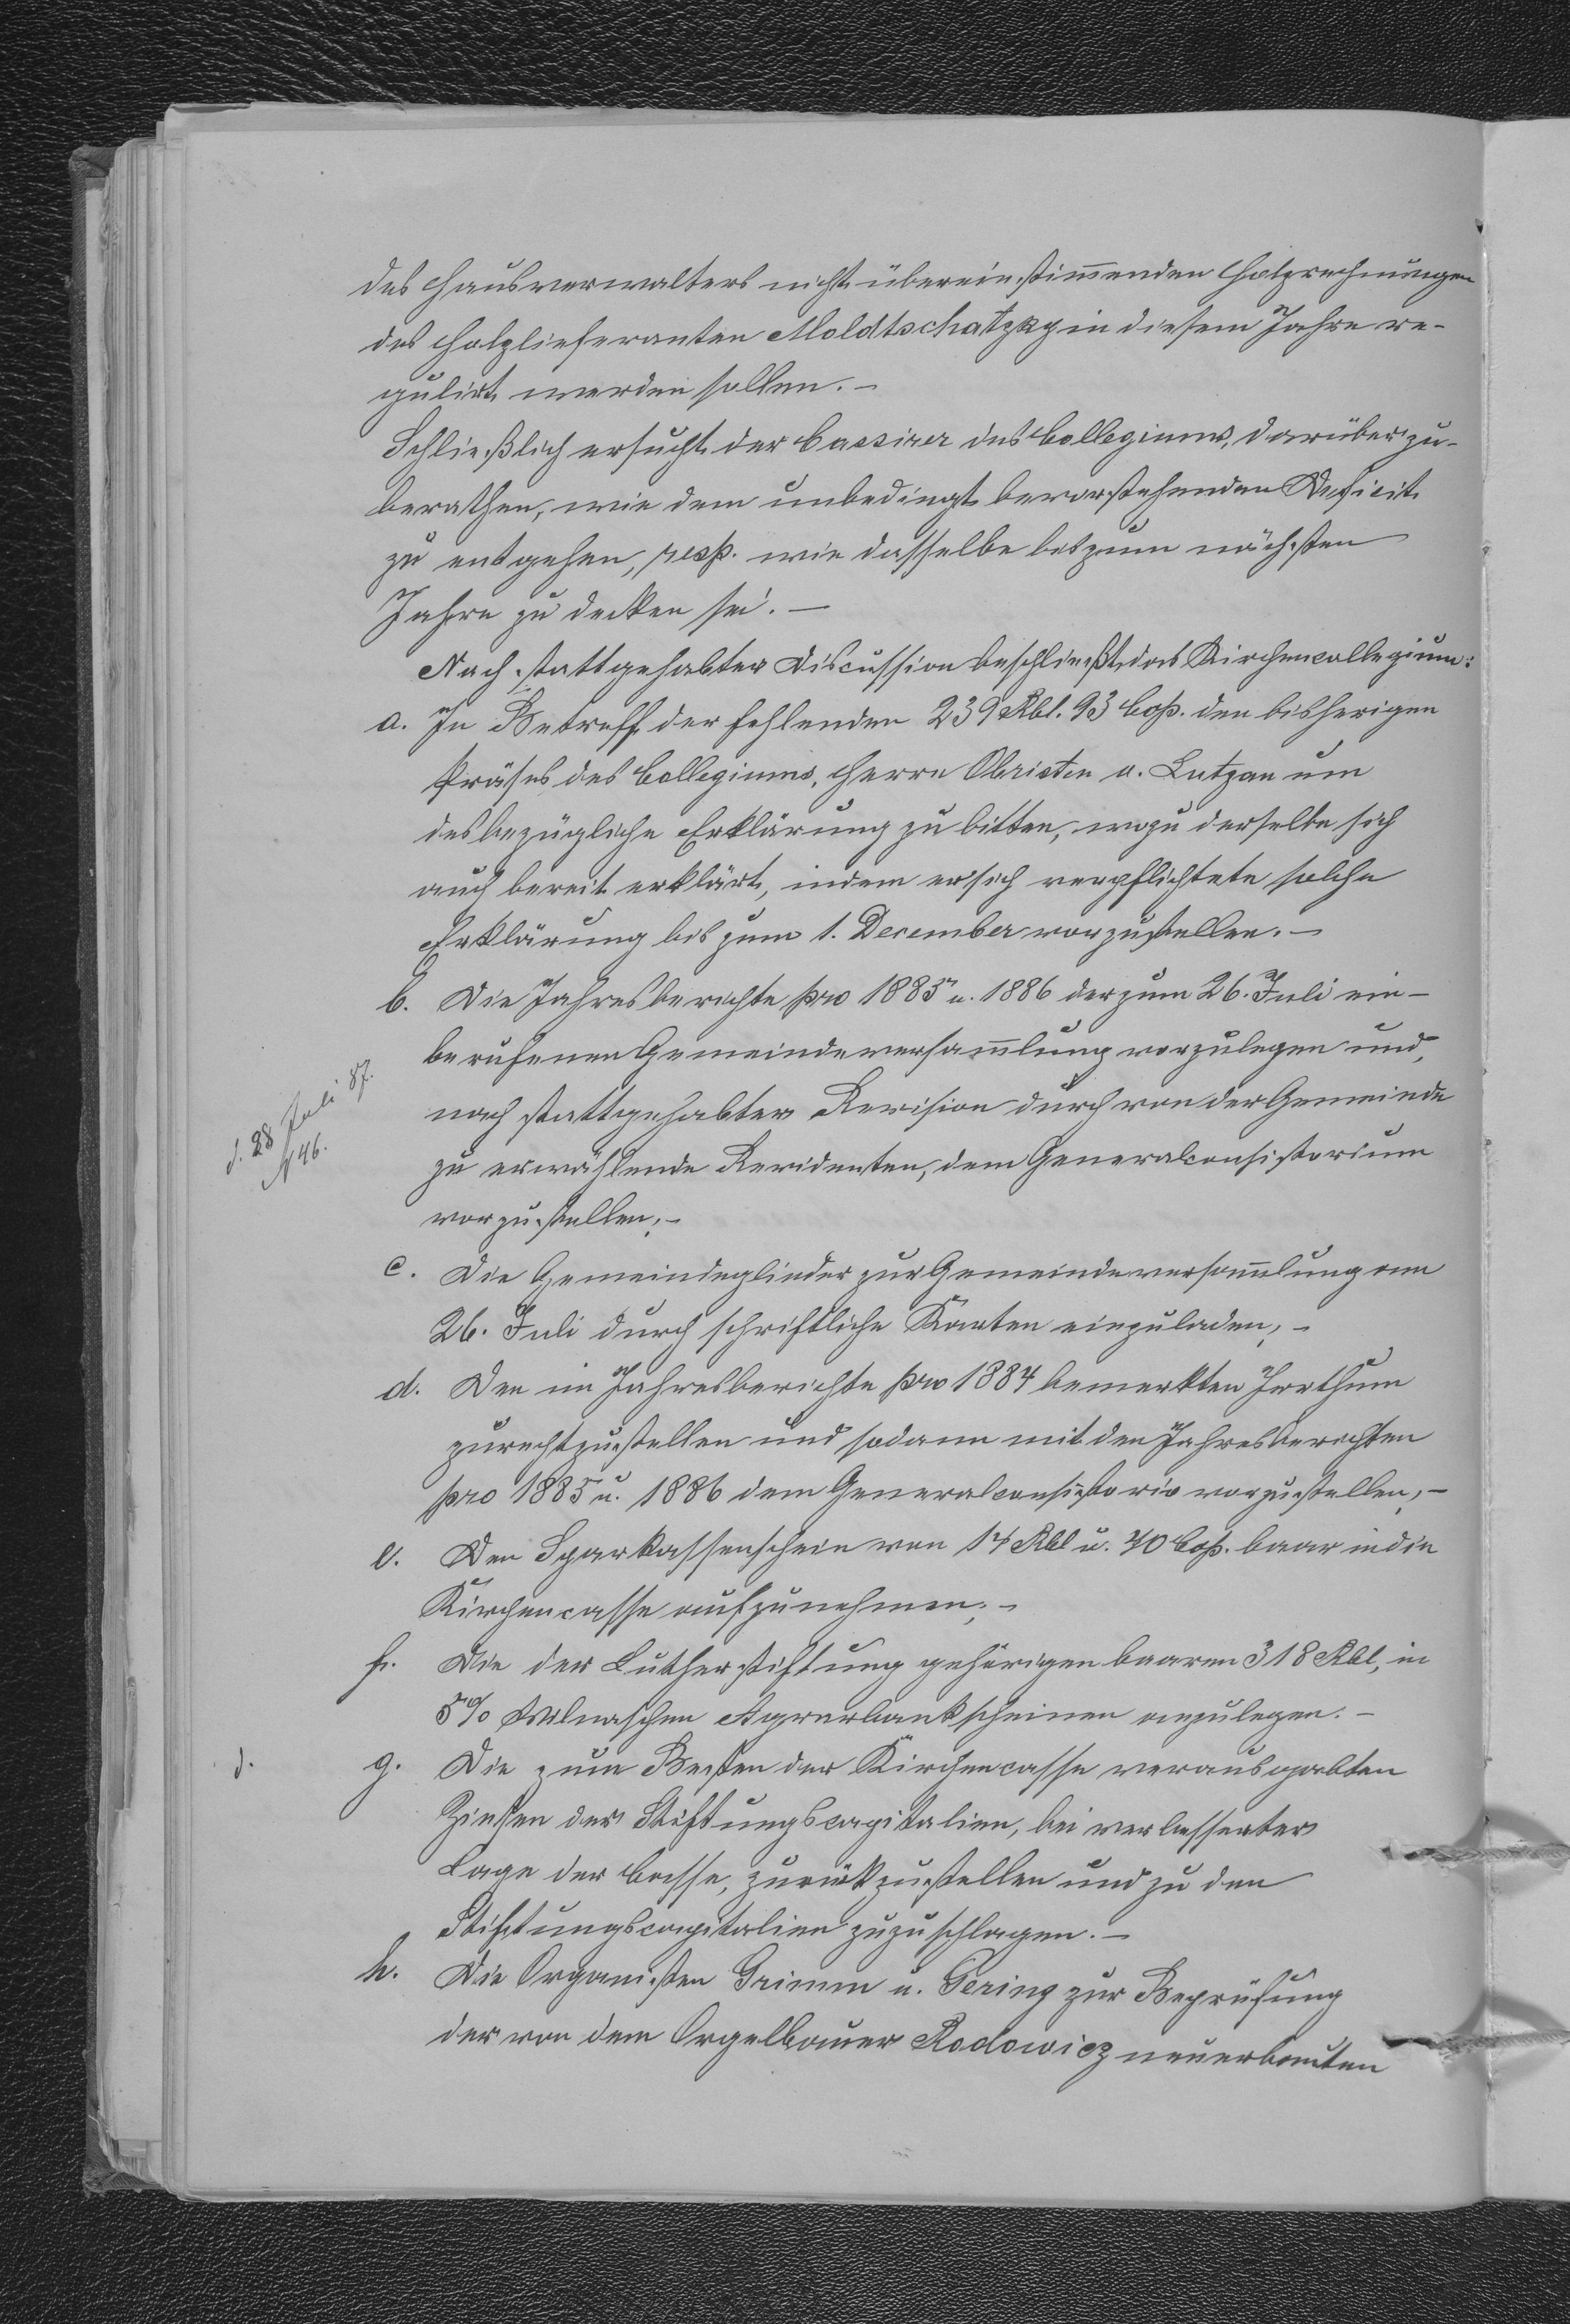 des Hausverwalters nicht übereinstimmenden Holzrechnungen
des Holzlieferanten Moldtschatzky in diesem Jahre re-
gulirt werden sollen. –
Schließlich ersucht der Cassirer des Collegiums, darüber zu
berathen, wie dem unbedingt bevorstehenden Deficit
zu entgehen, resp. wie dasselbe bis zum nächsten
Jahre zu decken sei. –
Nach stattgehabter Discussion beschließt das Kirchencollegium:
a. In Betreff der fehlenden 239 Rbl. 93 Cop. den bisherigen
Präses des Collegiums, Herrn Obristen v. Lutzau um
desbezügliche Erklärung zu bitten, wozu derselbe sich
auch bereit erklärt, indem er sich verpflichtete solche
Erklärung bis zum 1. December vorzustellen. –
b. Die Jahresberichte pro 1885 u. 1886 der zum 26. Juli ein-
berufenen Gemeindeversam̅lung vorzulegen und,
d. 28 Juli 87.
N 46.
nach stattgehabter Revision durch von der Gemeinde
zu erwählende Revidenten, dem Generalconsistorium
vorzustellen; –
c. Die Gemeindeglieder zur Gemeindeversam̅lung am
26. Juli durch schriftliche Karten einzuladen; –
d. Den im Jahresberichte pro 1884 bemerkten Irrthum
zurechtzustellen und sodann mit den Jahresberichten
pro 1885 u. 1886 dem Generalconsistorio vorzustellen; –
e. Den Sparkassenschein von 14 Rbl u. 40 Cop. baar in die
Kirchencasse aufzunehmen; –
f. Die der Lutherstiftung gehörigen baaren 318 Rbl, in
5% Wilnaschen Agrarbankscheinen anzulegen. –
d.
g. Die zum Besten der Kirchencasse verausgabten
Zinsen der Stiftungscapitalien, bei verbesserter
Lage der Casse, zurückzustellen und zu den
Stiftungscapitalien zuzuschlagen. –
h. Die Organisten Grimm u. Gering zur Beprüfung
der von dem Orgelbauer Rodowicz neuerbauten